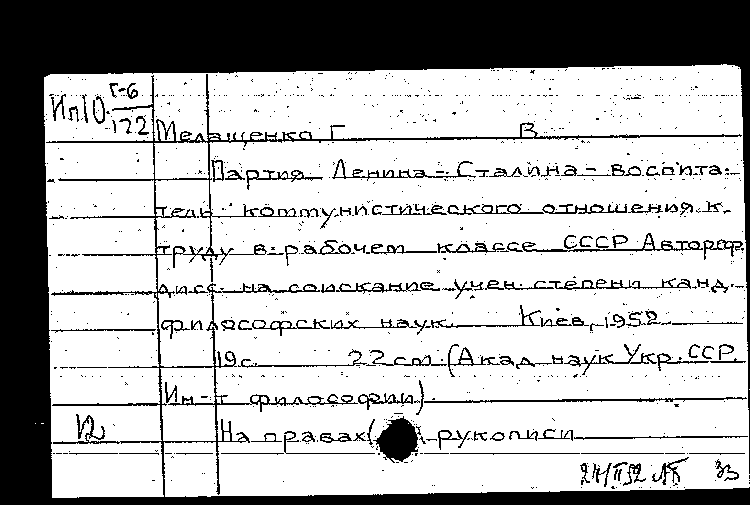 Ип10 Г-6
122
Мелащенко Г В
Партия Ленина - Сталина - воспита-
тель коммунистического отношения к
труду в рабочем классе СССР Автореф
дисс. на соискание учен. степени канд.
философских наук. Киев, 1952
19с. 22 см. (Акад наук Укр. ССР.
Ин-т философии).
На правах рукописи
24/II 52